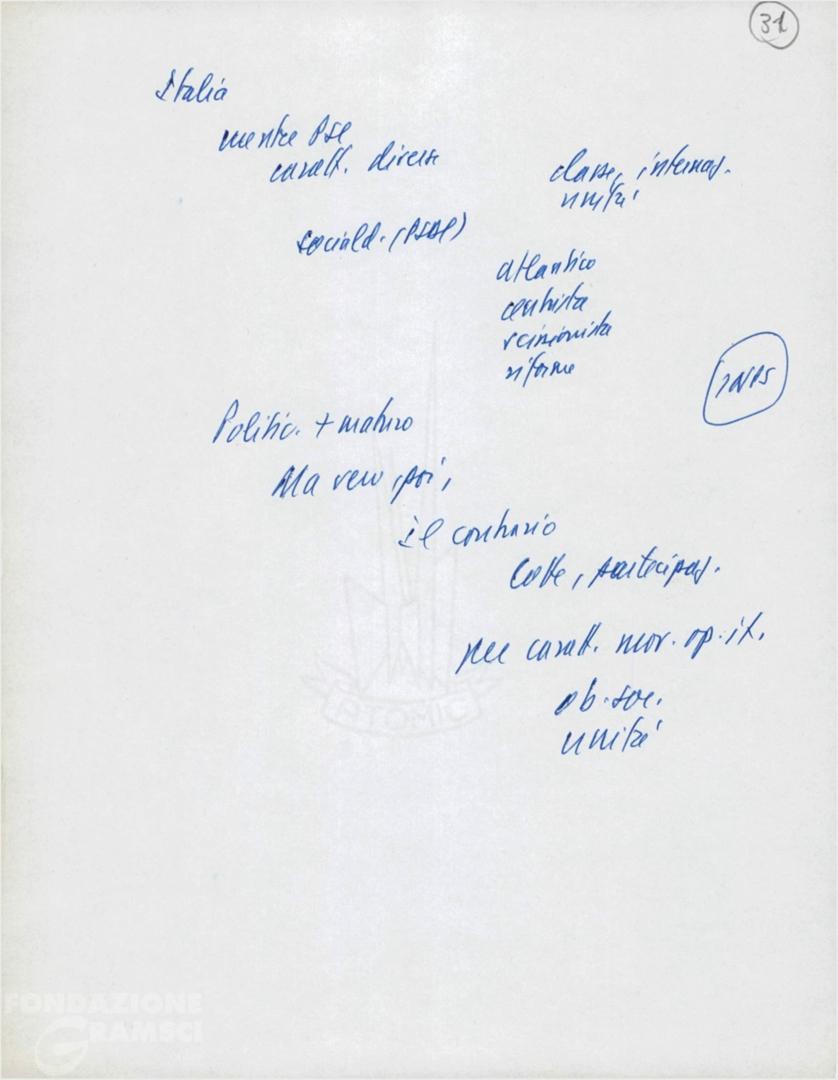 31
Italia
mentre PSI
caratt. diverse
classe, internaz.
unità
sociald. (PSDI)
atlantico
centrista
scissionista
riforme
INPS
Politic. + maturo
Ma vero, poi,
il contrario
Lotte, partecipaz.
per caratt. mov. op. it.
ob. soc.
unità
ATOMIC
FONDAZIONE
GRAMSCI